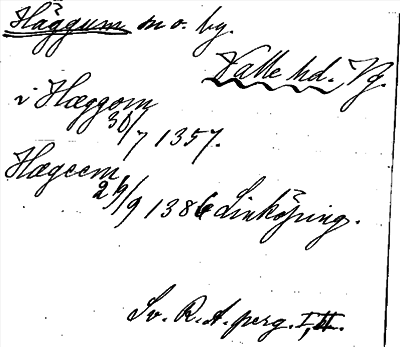 Häggum m o. by.
Valle hd. Vg.
i Hæggom
30/7 1357.
Hægeem
29/9 1386 Linköping.
Sv. R. A. perg. I, II.